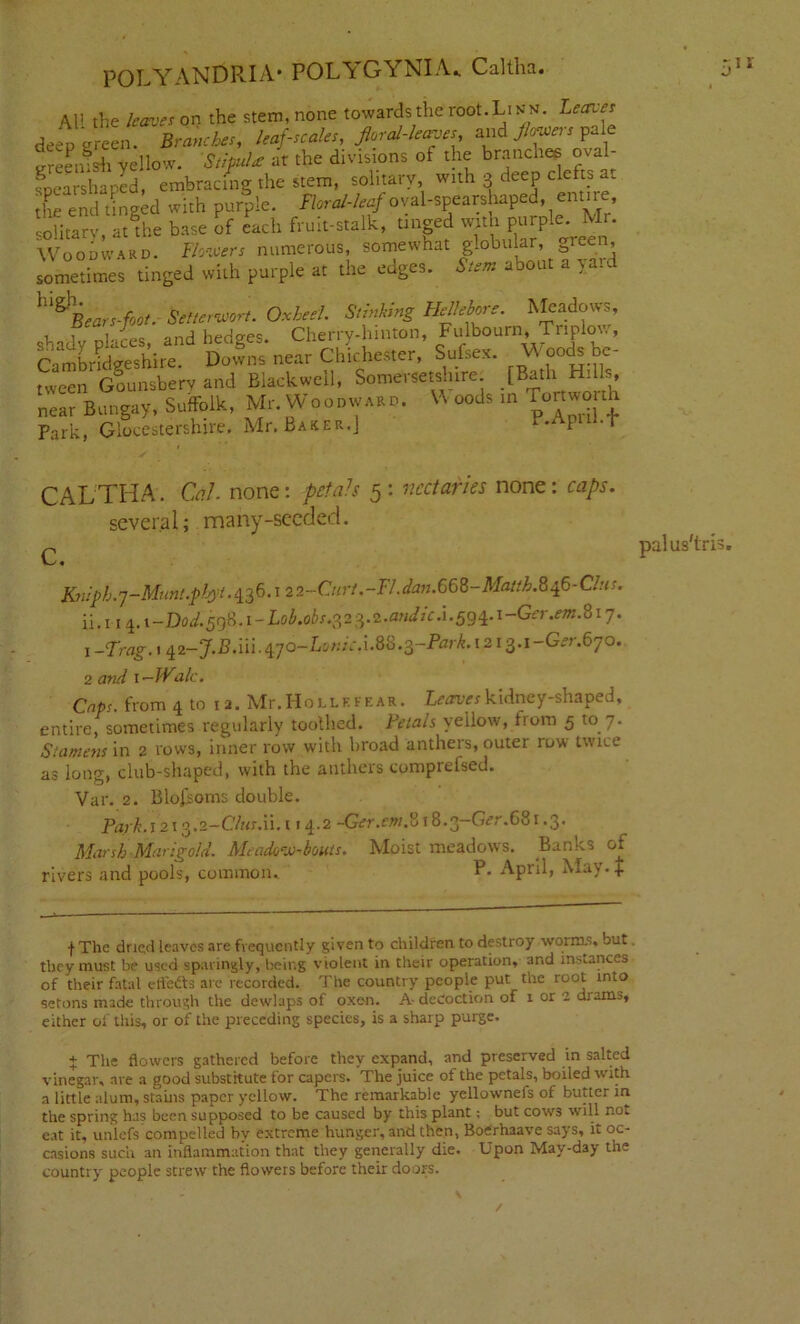 POLYANDRIA. POLYGYNIA. Caltha. 511
All the leaves on the stem, none towards the root. LINN. Leaves
deep green. Branches, leaf-scales, floral-leaves, and flowers pale
greenish yellow. Stipulæ at the divisions of the branches oval-
spearshaped, embracing the stem, solitary, with 3 deep clefts at
the end tinged with purple. Floral-leaf oval-spearshaped, entire,
solitary, at the base of each fruit-stalk, tinged with purple. Mr.
WOODWARD. Flowers numerous, somewhat globular, green,
sometimes tinged with purple at the edges. Stem about a yard
high.
Bears-foot. Setterwort. Oxheel. Stinking Hellebore. Meadows,
shady places, and hedges. Cherry-hinton, Fulbourn, Triplow,
Cambridgeshire. Downs near Chichester, Sufsex. Woods be-
tween Gounsbery and Blackwell, Somersetshire. [Bath Hills,
near Bungay, Suffolk, Mr. WOODWARD. Woods in Tortworth
Park, Glocestershire. Mr. BAKER.] P. April.†
CALTHA. Cal. none: petals 5: nectaries none: caps.
several; many-seeded.
C. palus'tris.
Kniph.7-Munt.phyt.436.122-Curt.-Fl.dan.668-Matth.846-Clus.
ii.114.1-Dod.598.1-Lob.obs.323.2.andic.i.594.1-Ger.em.817.
1-Trag.142-J.B.iii.470-Lonic.i.88.3-Park.1213.1-Ger.670.
2 and 1-Walc.
Caps. from 4 to 12. Mr. HOLLEFEAR. Leaves kidney-shaped,
entire, sometimes regularly toothed. Petals yellow, from 5 to 7.
Stamens in 2 rows, inner row with broad anthers, outer row twice
as long, club-shaped, with the anthers comprefsed.
Var. 2. Blofsoms double.
Park.1213.2-Clus.ii.114.2-Ger.em.818.3-Ger.681.3.
Marsh Marigold. Meadow-bouts. Moist meadows. Banks of
rivers and pools, common. P. April, May.‡
† The dried leaves are frequently given to children to destroy worms, but
they must be used sparingly, being violent in their operation, and instances
of their fatal effects are recorded. The country people put the root into
setons made through the dewlaps of oxen. A decoction of 1 or 2 drams,
either of this, or of the preceding species, is a sharp purge.
‡ The flowers gathered before they expand, and preserved in salted
vinegar, are a good substitute for capers. The juice of the petals, boiled with
a little alum, stains paper yellow. The remarkable yellownefs of butter in
the spring has been supposed to be caused by this plant: but cows will not
eat it, unlefs compelled by extreme hunger, and then, Boërhaave says, it oc-
casions such an inflammation that they generally die. Upon May-day the
country people strew the flowers before their doors.